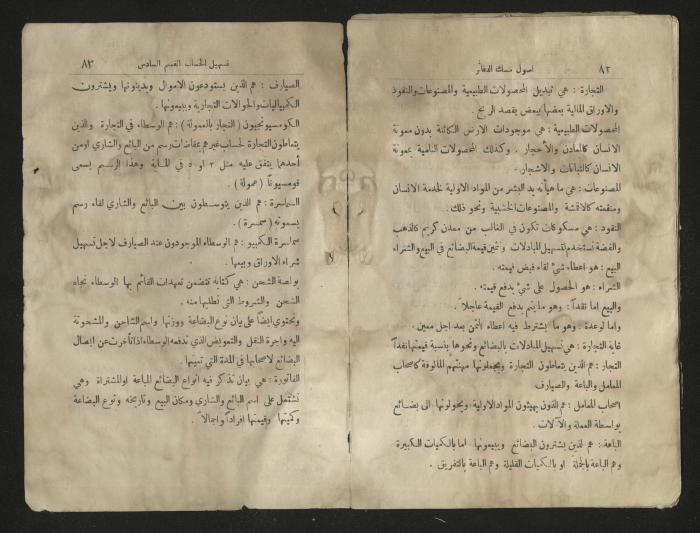 ٨٢ اصول مسك الدفاتر
التجارة : هي تبديل المحصولات الطبيعية والمصنوعات والنقود
والاوراق المالية بعضها ببعض بقصد الربح .
المحصولات الطبيعية : هي موجودات الارض الكائنة بدون معونة
الانسان كالمعادن والأحجار . وكذلك المحصولات النامية بمعونة
الانسان كالنباتات والاشجار .
المصنوعات : هي ما هيأته يد البشر من المواد الاولية لخدمة الانسان
ومنفعته كالاقشة والمصنوعات الخشبية ونحو ذلك .
النقود : هي مسكوكات تكون في الغالب من معدن كريم كالذهب
والفضة تستخدم لتسهيل المبادلات وتثمين قيمة البضائع في البيع والشراء
البيع : هو اعطاء شيء لقاء قبض قيمته .
الشراء : هو الحصول على شيء بدفع قيمته .
والبيع اما نقداً : وهو ما يتم بدفع القيمة عاجلاً .
واما لوعدة : وهو ما يشترط فيه اعطاء الثمن بعد اجل معين .
غاية التجارة : هي تسهيل المبادلات بالبضائع ونحوها بنسبة قيمتها نقداً
التجار : هم الذين يتعاطون التجارة ويجعلونها مهنتهم المألوفة كاصحاب
المعامل والباعة والصيارف
اصحاب المعامل : هم الذين يهيئون المواد الاولية ويحولونها الى بضائع
بواسطة العملة والآلات .
الباعة : هم الذين يشترون البضائع ويبيعونها اما بالكميات الكبيرة
وهم الباعة بالجملة او بالكميات القليلة وهم الباعة بالتفريق .
تسهيل الحساب القسم السادس ٨٣
الصيارف : هم الذين يستودعون الاموال ويدينونها ويشترون
الكمبيالات والحوالات التجارية ويبيعونها .
الكومسيونجيون ( التجار بالعمولة ) : هم الوسطاء في التجارة والذين
يتعاطون التجارة لحساب غيرهم بمقاضات رسم من البائع والشاري او من
أحدهما يتفق عليه مثل ٢ او ٥ في المائة وهذا الرسم يسمى
قومسيوناً ( عمولة ) .
السماسرة : هم الذين يتوسطون بين البائع والشاري لقاء رسم
يسمونه ( سمسرة ) .
سماسرة الكمبيو : هم الوسطاء الموجودون عند الصيارف لاجل تسهيل
شراء الاوراق وبيعها .
بولصة الشحن : هي كتابة تتضمن تعهدات القائم بها الوسطاء تجاه
الشحن والشروط التي تطلبها منه .
وتحتوي ايضاً على بيان نوع البضاعة ووزنها واسم الشاحن والمشحونة
اليه واجرة النقل والتعويض الذي تدفعه الوسطاء اذا تأخرت عن ايصال
البضائع لاصحابها في المدة التي تعينها .
الفاتورة : هي بيان تذكر فيه انواع البضائع المباعة او المشتراة وهي
تشتمل على اسم البائع والشاري ومكان البيع وتاريخه ونوع البضاعة
وكميتها وقيمتها افراداً واجمالاً .